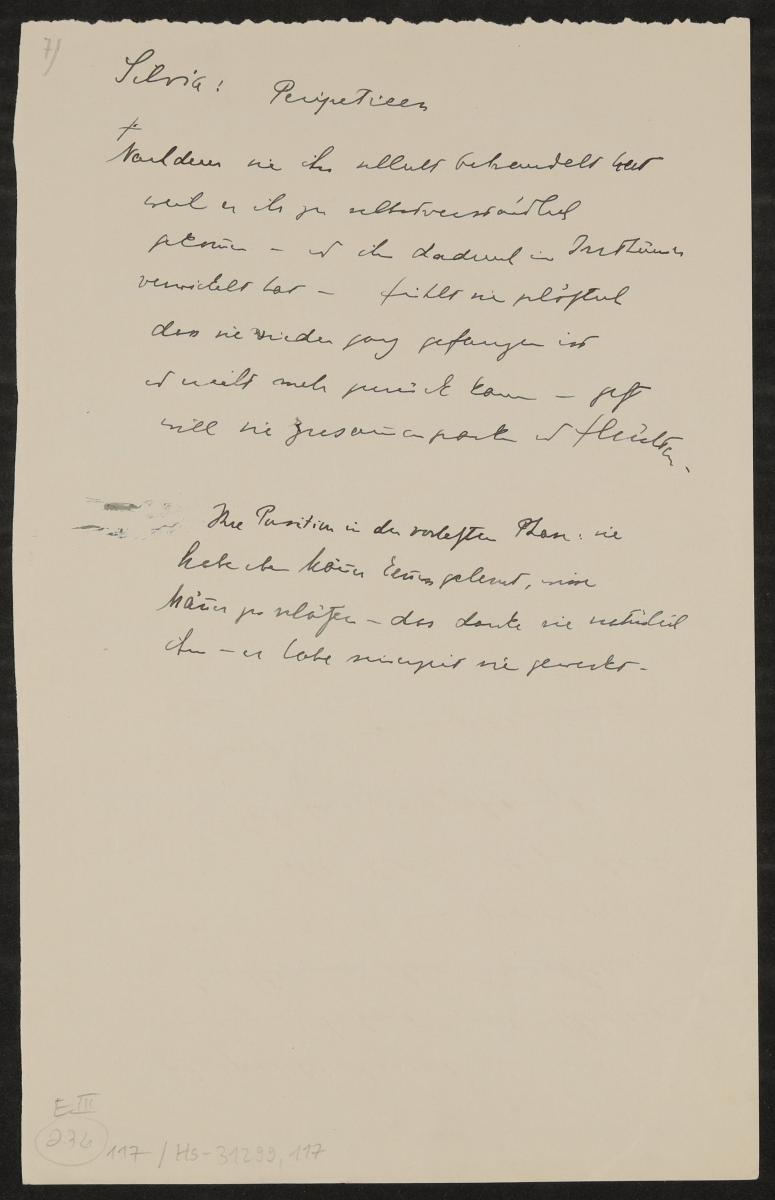 7)
Silvia: Peripetieen
+
Nachdem sie ihn schlecht behandelt hat
weil er ihr zu selbstverständlich
gekom̄en – u ihn dadurch in Irrthümer
verwickelt hat – fühlt sie plötzlich
dass sie wieder ganz gefangen ist
u nicht mehr zurück kann –
will sie zusam̄enpacken u flüchten.
Ihre Position in der vorletzten Phase: sie
habe eben Män̄er kennen gelernt, wisse
Män̄er zu – das danke sie natürlich
ihm – er habe seinerzeit sie geweckt –
E III
234
117 / Hs-31299,117